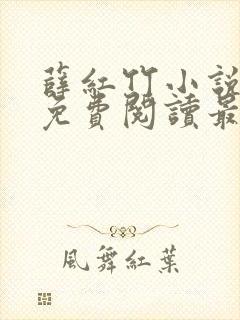 薛紅竹小說
免費閱讀最
風舞紅葉